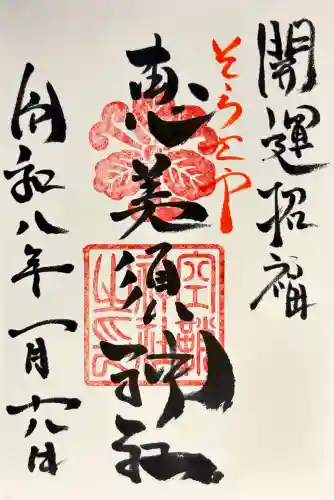 開運招福
そらとや
恵美須神社
令和八年一月十八日